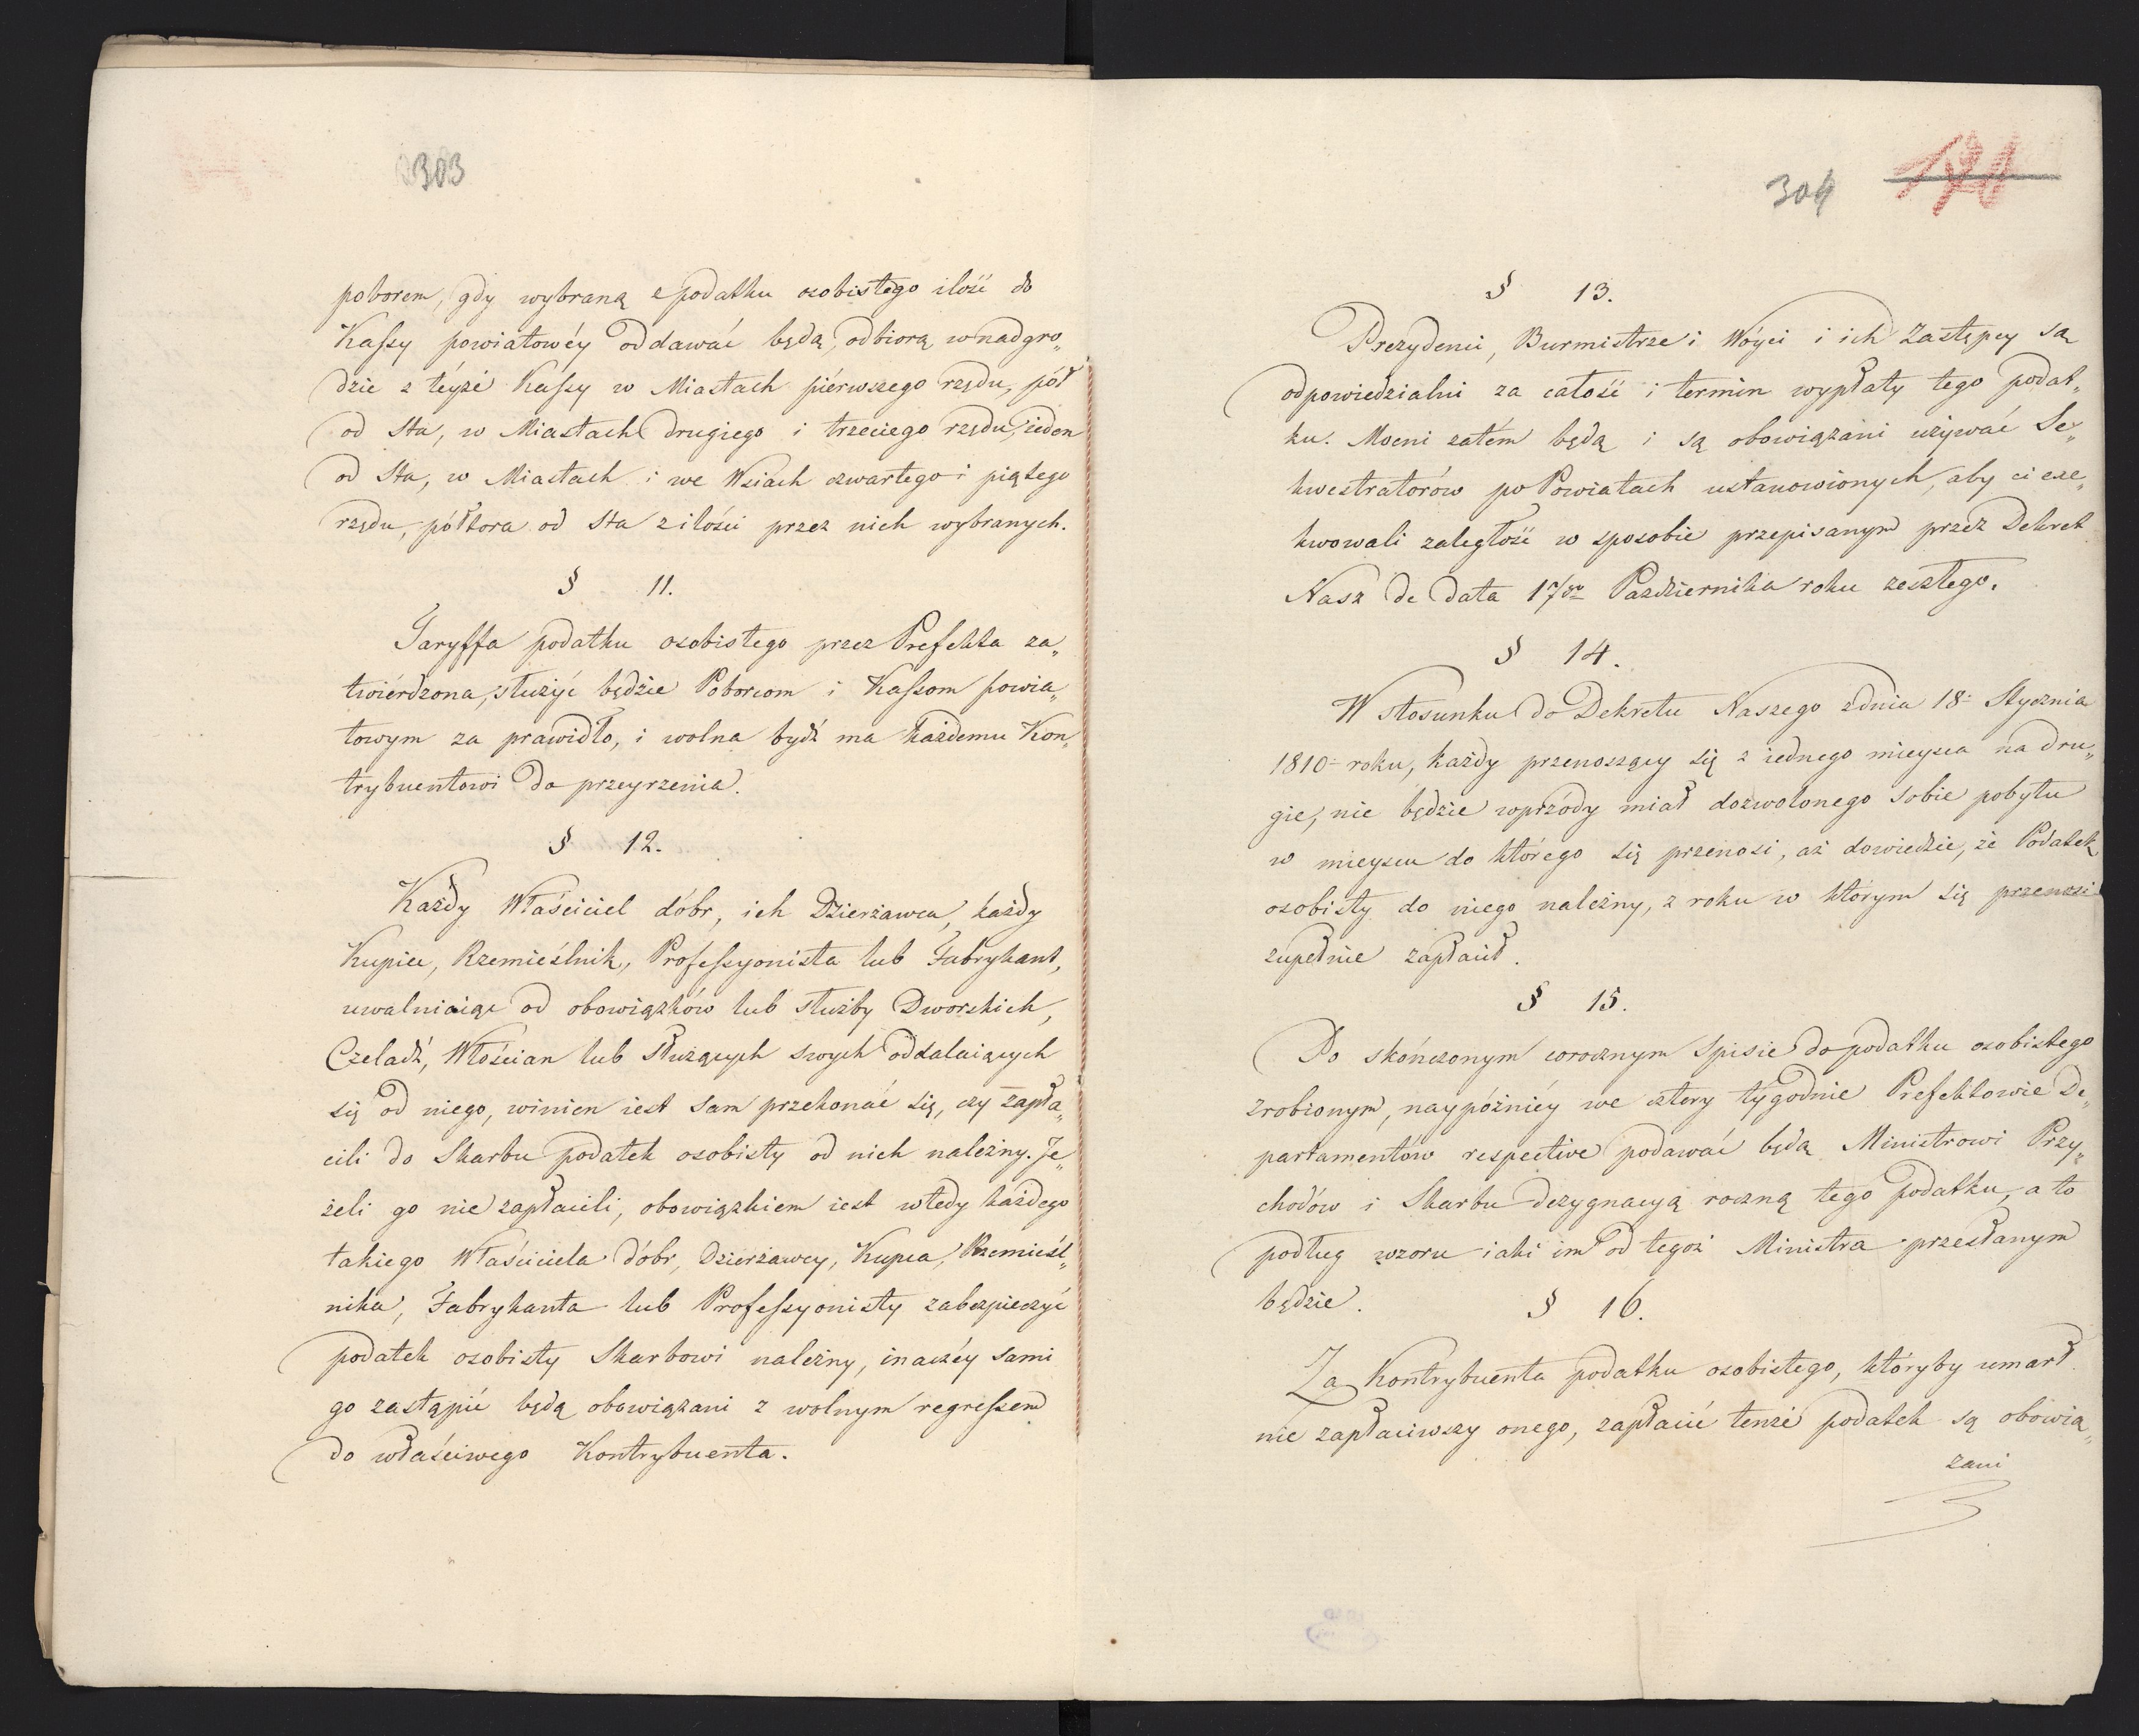 303
poborem, gdy wybraną z podatku osobistego ilość do
Kassy powiatowéy oddawać będą, odbiorą w nadgro„
dzie z téyże Kassy w Miastach piérwszego rzędu, pół
od Sta, w Miastach drugiego i trzeciego rzędu, ieden
od Sta, w Miastach i we Wsiach czwartego i piątego
rzędu, półtora od Sta z ilości przez nich wybranych.
§ 11.
Taryffa podatku osobistego przez Prefekta za„
twiérdzona, służyć będzie Poborcom i Kassom powia„
towym za prawidło, i wolna bydź ma każdemu Kon„
trybuentowi do przeyrzenia.
§ 12.
Każdy Właściciel dóbr, ich Dzierżawca, każdy
Kupiec, Rzemieślnik, Professyonista lub Fabrykant,
uwalniaiąc od obowiązków lub służby Dworskich,
Czeladź, Włościan lub Służących swych oddalaiących
się od niego, winien iest sam przekonać się, czy zapła„
cili do Skarbu podatek osobisty od nich należny. Je„
żeli go nie zapłacili, obowiązkiem iest wtedy każdego
takiego Właściciela dóbr, Dzierżawcy, Kupca, Rzemieśl„
nika, Fabrykanta lub Professyonisty zabezpieczyć
podatek osobisty Skarbowi należny, inaczéy sami
go zastąpić będą obowiązani z wolnym regressem
do właściwego Kontrybuenta.
304
§ 13.
Prezydenci, Burmistrze i Wóyci i ich Zastępcy są
odpowiedzialni za całość i termin wypłaty tego podat„
ku. Mocni zatém będą i są obowiązani używać Se„
kwestratorów po Powiatach ustanowionych, aby ci exe„
kwowali zaległość w sposobie przepisanym przez Dekret
Nasz de data 17go Października roku zeszłego.
§ 14.
W stosunku do Dekretu Naszego z dnia 18 Stycznia
1810 roku, każdy przenoszący się z iednego mieysca na dru„
gie, nie będzie wprzódy miał dozwolonego sobie pobytu
w mieyscu do którego się przenosi, aż dowiedzie, że Podatek
osobisty do niego należny, z roku w którym się przenosi
zupełnie zapłacił.
§ 15.
Po skończonym corocznym Spisie do podatku osobistego
zrobionym, naypóźniéy we cztery tygodnie Prefektowie De„
partamentów respective podawać będą Ministrowi Przy„
chodów i Skarbu dezygnacyą roczną tego Podatku, a to
podług wzoru iaki im od tegoż Ministra przesłanym
będzie.
§ 16.
Za Kontrybuenta podatku osobistego, któryby umarł
nie zapłaciwszy onego, zapłacić tenże podatek są obowią„
zani